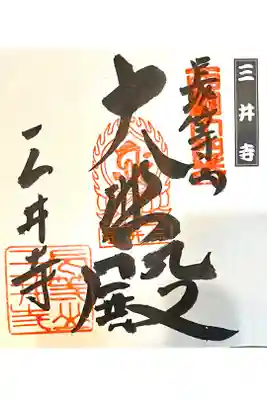 三井寺
長等山
大悲殿
三井寺